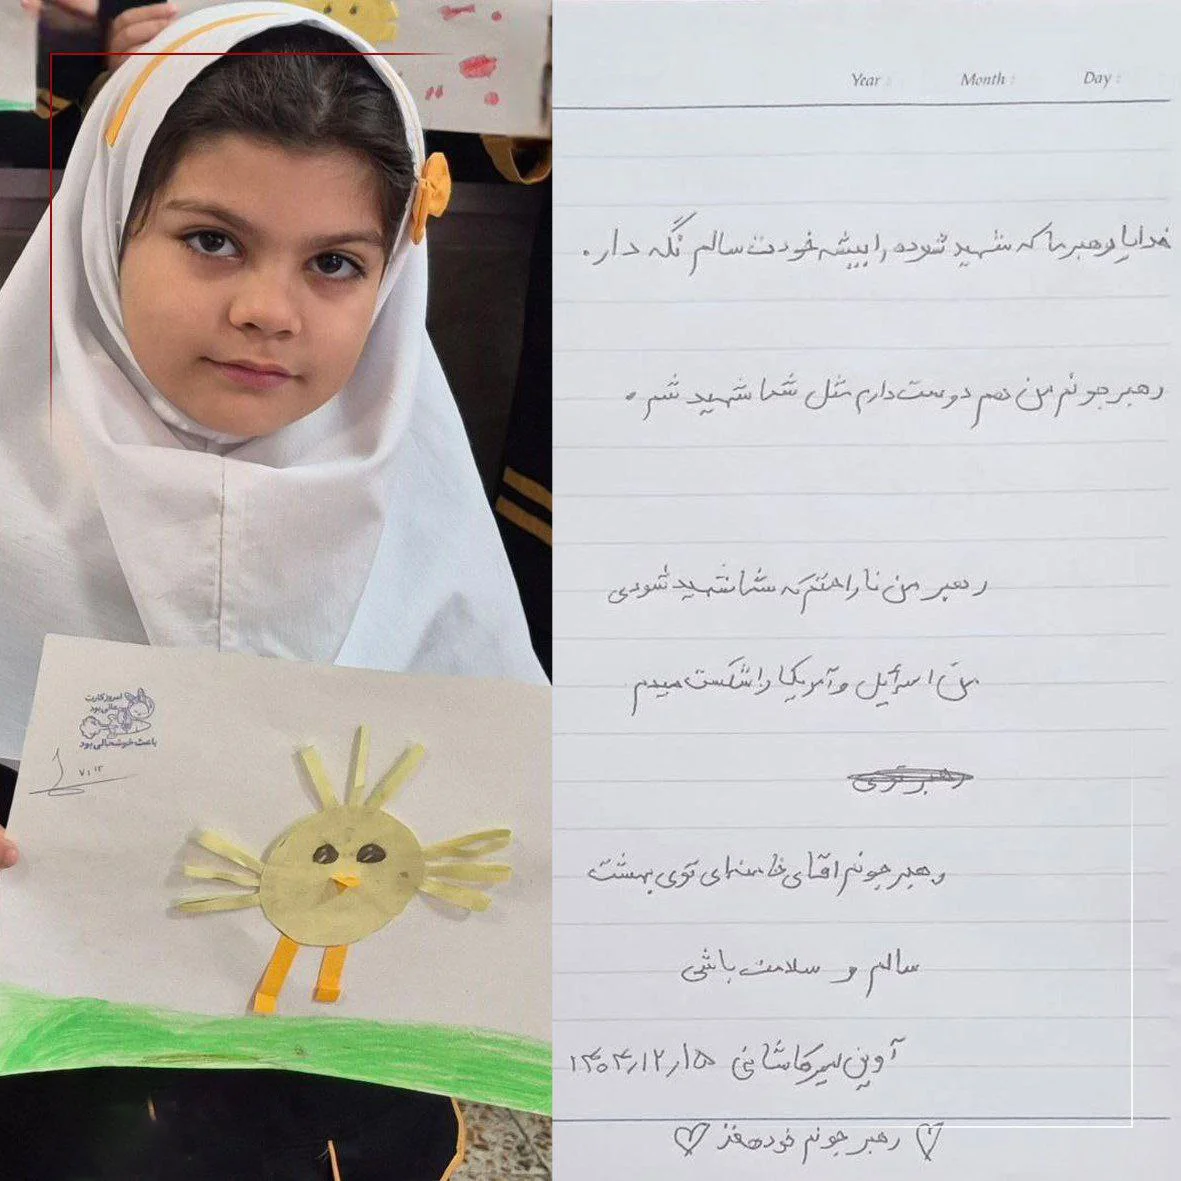 امروز کارت
عالی بود
باعث خوشحالی بود
۷/۱۲
Year : Month : Day :
خدایا رهبر ما که شهید شوده را پیشه خودت سالم نگه دار.
رهبر جونم من هم دوست دارم مثل شما شهید شم.
رهبر من ناراحتم که شما شهید شودی
من اسرائیل و آمریکا را شکست میدم
رهبر جونم آقای خامنه‌ای توی بهشت
سالم و سلامت باشی
آوین میرکاشانی ۱۴۰۴/۱۲/۱۵
رهبر جونم خودهفز